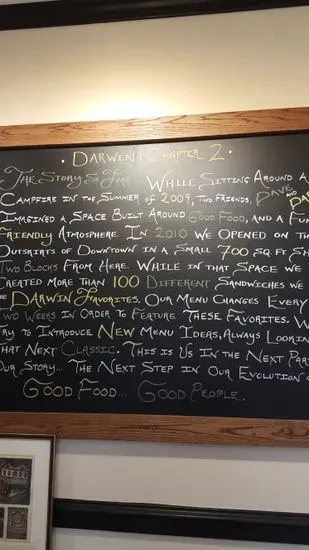 • Darwin: Chapter 2 •
The Story So Far... While Sitting Around a
Campfire in the Summer of 2009, Two Friends, Dave and
Imagined a Space Built Around Good Food, and a Fun
Friendly Atmosphere. In 2010 We Opened on th
Outskirts of Downtown in a Small 700 sq. ft. Sh
Two Blocks From Here. While in that Space we
Created More than 100 Different Sandwiches we
Darwin Favorites. Our Menu Changes Every
Two Weeks in Order to Feature These Favorites. W
Try to Introduce New Menu Ideas, Always Lookin
hat Next Classic. This is Us in the Next Par
Our Story... The Next Step in Our Evolution o
Good Food... Good People.